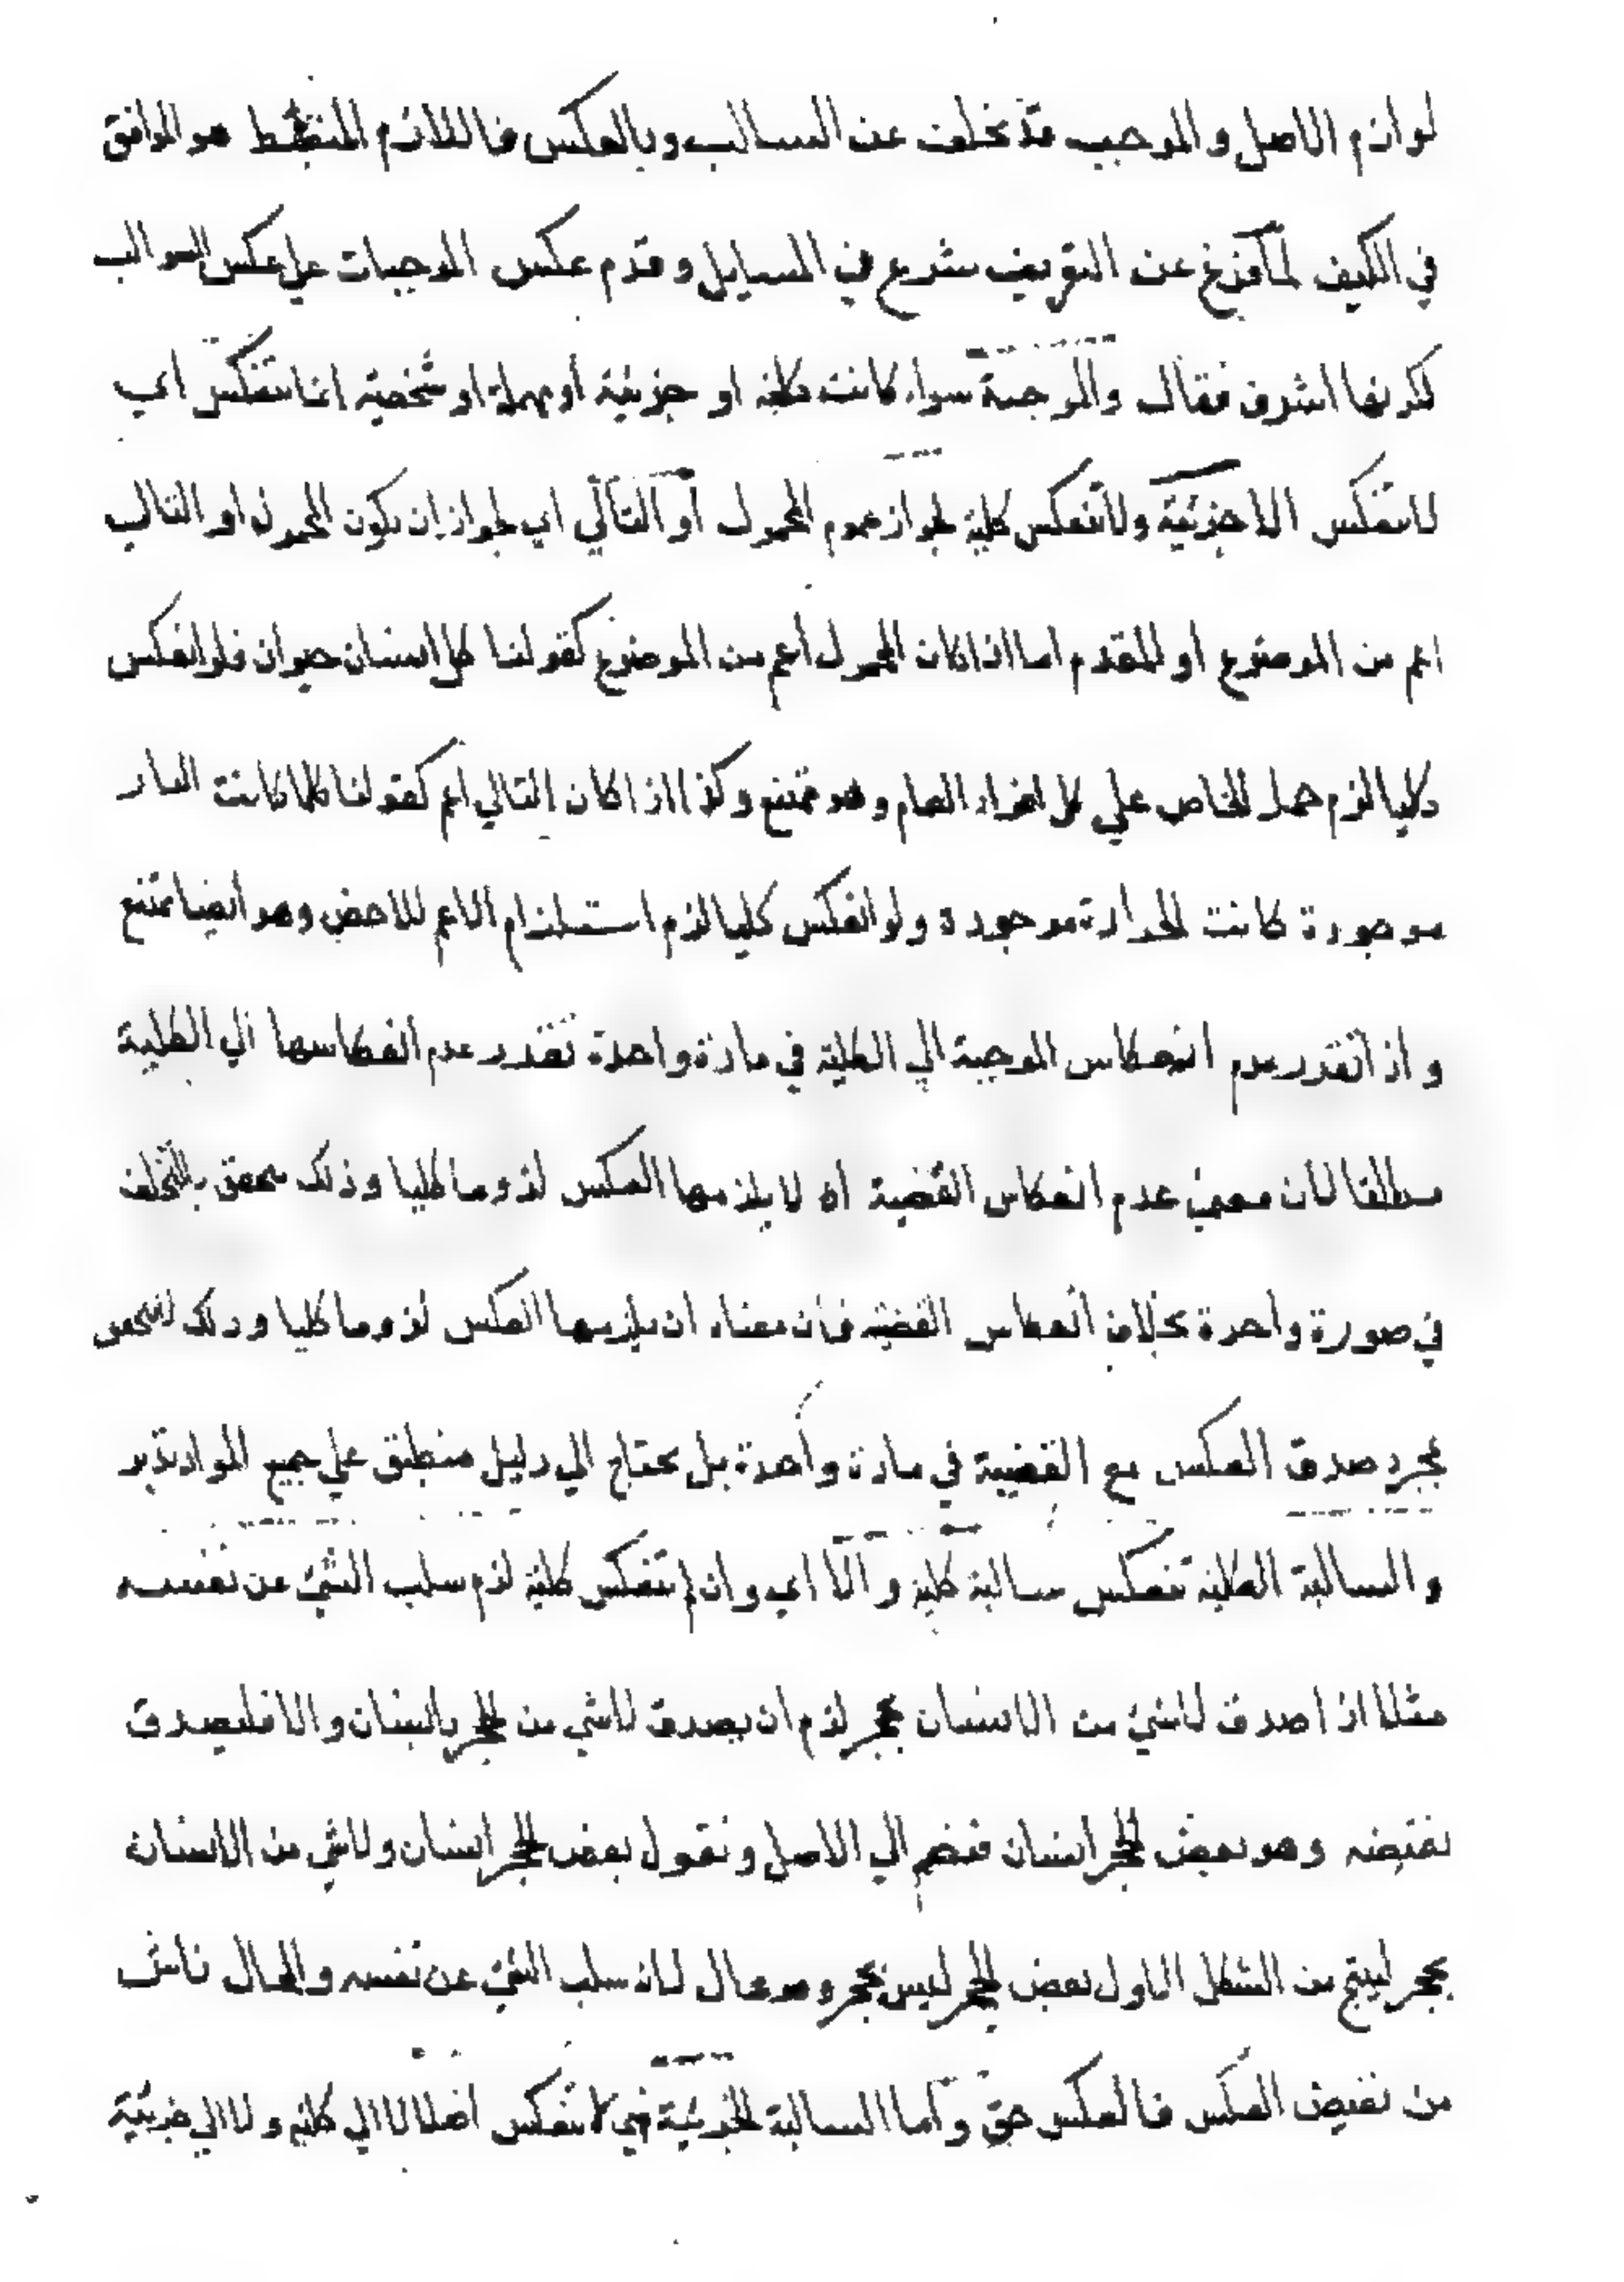 لوازم الاصل والموجب قد تخلف عن السالب وبالعكس فاللازم المنضبط هو الموافق
في الكيف لما فرغ عن التعريف شرع في المسايل وقدم عكس الموجبات علي عكس السوالب
لكونها اشرف فقال والموجبة سواء كانت كلية او جزئية أو مهملة او شخصية انما تنعكس اي
لا تنعكس الا جزئية ولا تنعكس كلية لجواز عموم المحمول أو التالي اي لجواز ان يكون المحمول او التالي
اعم من الموضوع أو المقدم اما اذا كان المحمول أعم من الموضوع كقولنا كل انسان حيوان فلو انعكس
كليا لزم حمل الخاص علي كل افراد العام وهو ممتنع وكذا اذا كان التالي اعم كقولنا كلما كانت النار
موجودة كانت الحرارة موجودة ولو انعكس كليا لزم استلزام الاعم للاخص وهو أيضا ممتنع
واذا تقدر عدم انعكاس الموجبة الي الكلية في مادة واحدة تقدر عدم انعكاسها الي الكلية
مطلقا لان معنى عدم انعكاس القضية انه لا يلزمها العكس لزوما كليا وذلك يتحقق بالتخلف
في صورة واحدة بخلاف انعكاس القضية فان معناه ان يلزمها العكس لزوما كليا وذلك
بمجرد صدق العكس مع القضية في مادة واحدة بل يحتاج الي دليل منطبق علي جميع المواد تدبر
والسالبة الكلية تنعكس سالبة كلية والا اي وان لم تنعكس كلية لزم سلب الشئ عن نفسه
مثلا اذا صدق لا شئ من الانسان بحجر لزم ان يصدق لا شي من الحجر بانسان والا فليصدق
نقيضه وهو بعض الحجر انسان فنضم الي الاصل ونقول بعض الحجر انسان ولا شي من الانسان
بحجر لينتج من الشكل الاول بعض الحجر ليس بحجر وهو محال لان سلب الشئ عن نفسه والمحال ناش
من نقيض العكس فالعكس حق وأما السالبة الجزئية فهي لا تنعكس اصلا لا الي كلية ولا الي جزئية